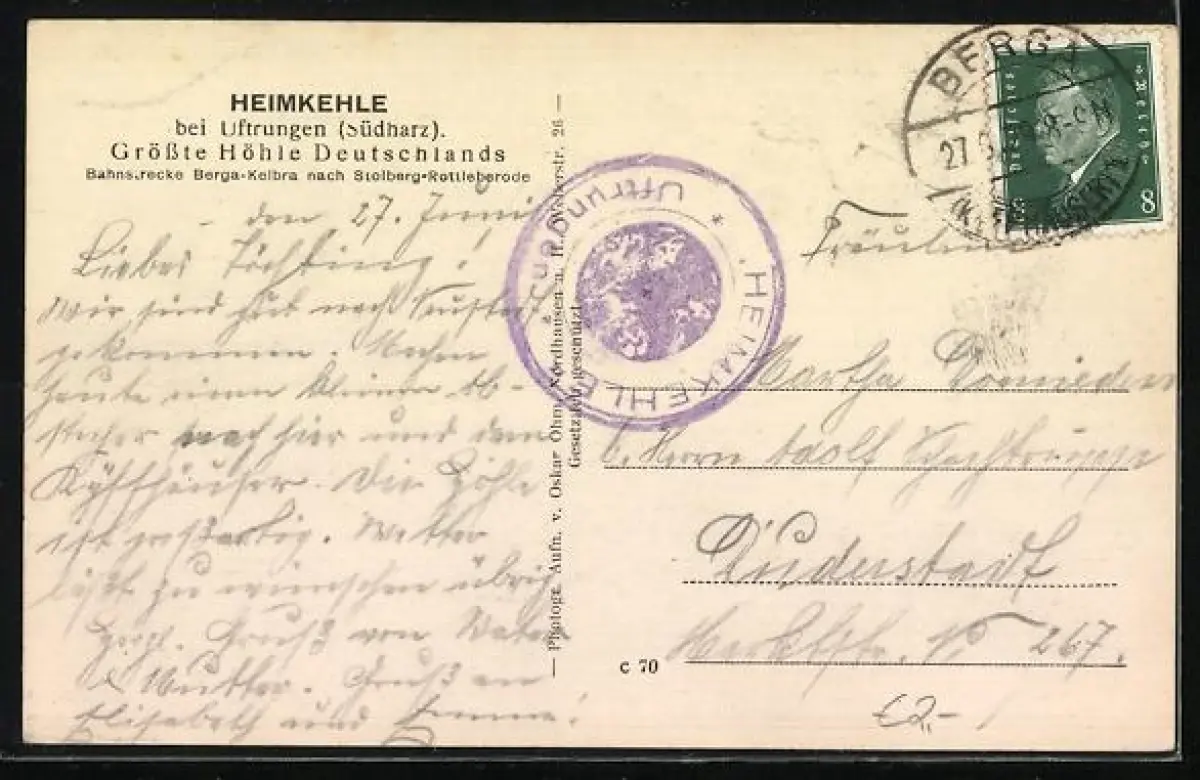 HEIMKEHLE
bei Uftrungen (Südharz).
Größte Höhle Deutschlands
Bahnstrecke Berga-Kelbra nach Stolberg-Rottleberode
den 27. Juni
Liebes Töchting!
Wir sind gut nach
gekommen. Machen
heute einen kleinen Ab-
stecher nach hier und dem
Kyffhäuser. Die Höhle
ist großartig. Wetter
läßt zu wünschen übrig
Herzl. Gruß von Vater
& Mutter. Gruß an
Elisabeth und Emma!
— Photogr. Aufn. v. Oskar Ohm, Nordhausen a. H., Weberstr. 26 —
Gesetzlich geschützt!
* HEIMKEHLE * Uftrungen
BERGA
27.
(KYFFHÄUSER)
Deutsches Reich
8
Fräulein
Martha
b. Herrn Adolf
Duderstadt
Marktstr. N. 267.
c 70
€2,-